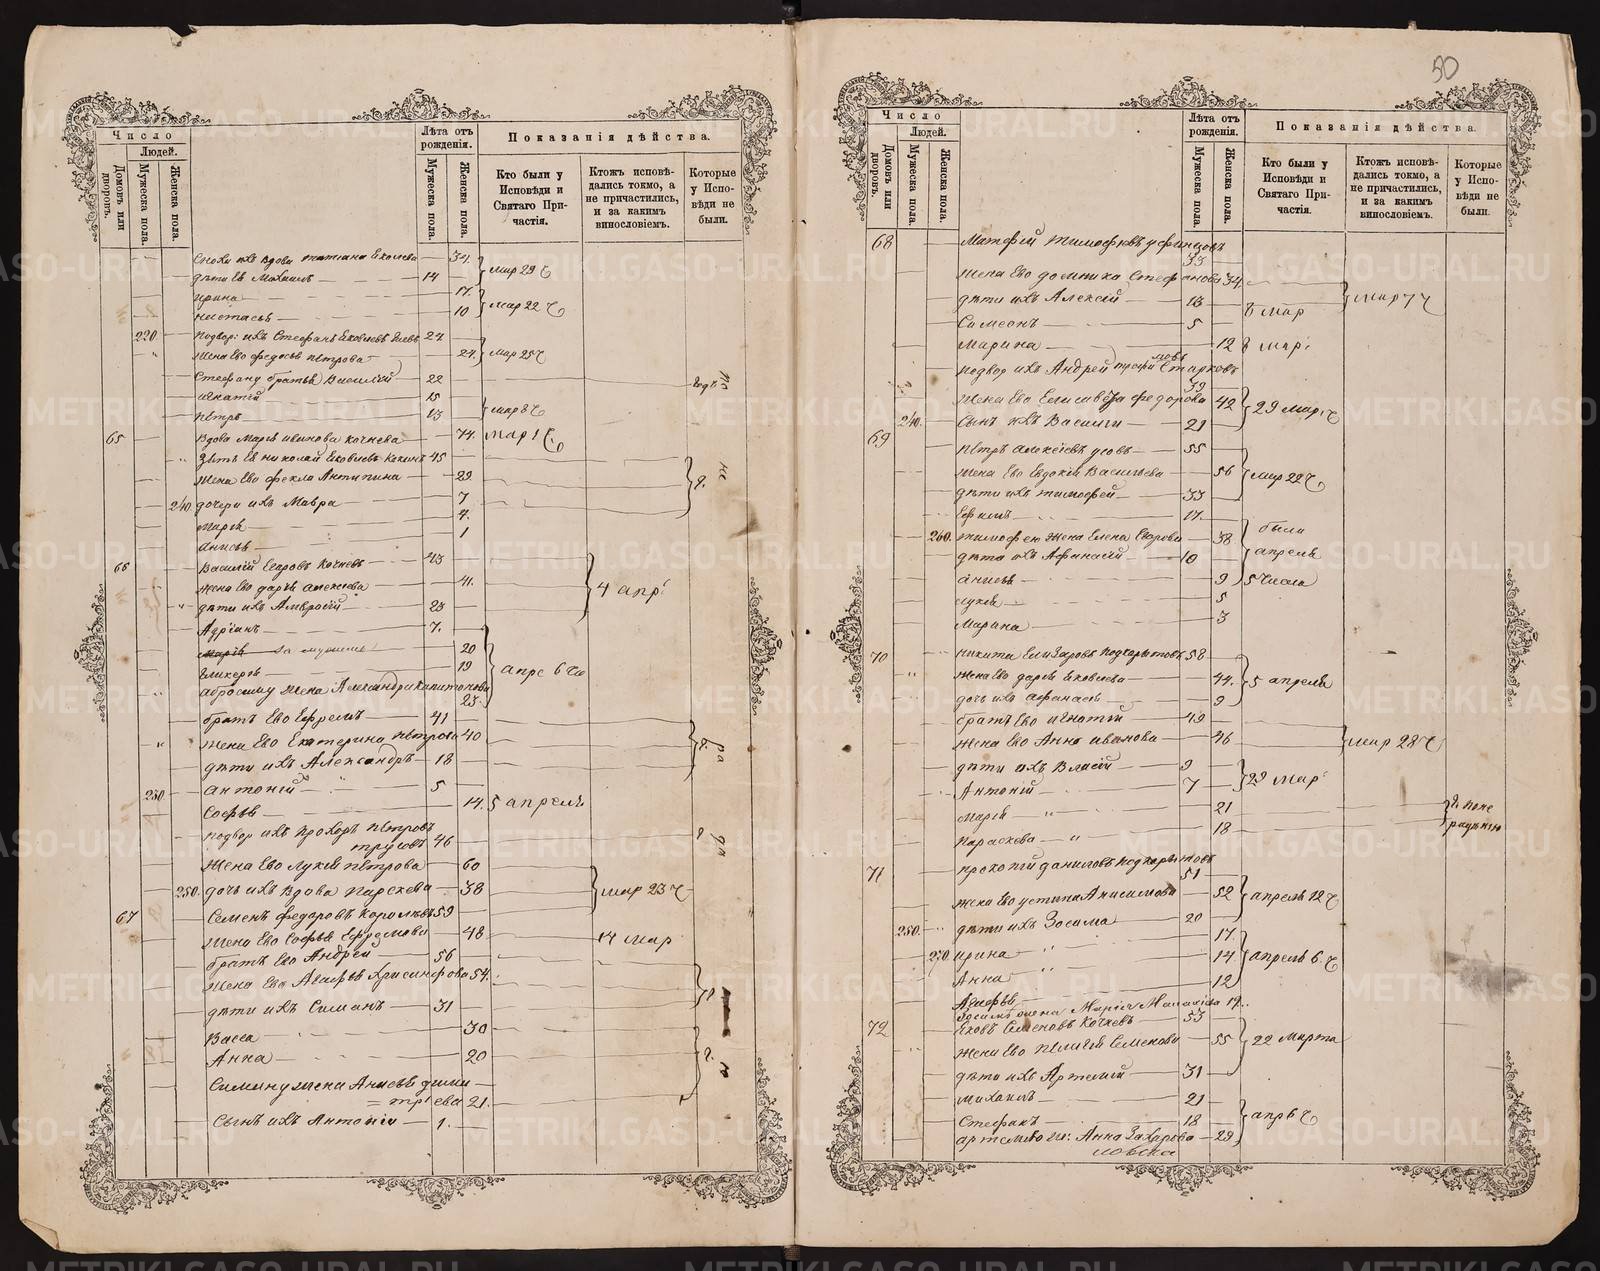 Число
Людей.
Домовъ или дворовъ.
Мужеска пола.
Женска пола.
Лѣта отъ рожденія.
Мужеска пола.
Женска пола.
Показанія дѣйства.
Кто были у Исповѣди и Святаго Причастія.
Ктожъ исповѣдались токмо, а не причастились, и за какимъ винословіемъ.
Которые у Исповѣди не были.
Сноха ихъ вдова Татіана Яковлева 34. мар 29 ч
дѣти Ея Михаилъ 14
Ирина 17. мар 22 ч
Настасья 10
220 Подвор: ихъ Стефанъ Яковлевъ 27
Жена Его Федосья Петрова 27. мар 25 ч
Стефану братья Василій 22
Игнатій 15 мар 8 ч
Петръ 13
65 Вдова Марья Иванова Кочнева 74. мар 1 ч
Зять Ея Николай Яковлевъ 45
Жена Его Фекла Антипина 29.
240 дочери ихъ Мавра 7
Марья 4.
Анисья 1
66 Василій Егоровъ Кочневъ 43
Жена Его Дарья Алексѣева 41. 4 апр
дѣти ихъ Амвросій 23
Адріанъ 7.
Марья за мужемъ 20
Гликерья 19 апре 6 чи
Абросиму жена Александра Капитонова
23.
братъ Его Ефремъ 41
Жена Его Екатерина Петрова 40
дѣти ихъ Александръ 18
230. Антоній 5
Софья 14. 5 апреля
Подвор ихъ Прохоръ Петровъ
Трусовъ 46
Жена Его Лукія Петрова 60
250. дочь ихъ вдова Парскева 38 мар 23 ч
67 Семенъ Федоровъ Корольковъ 59
Жена Его Софья Ефремова 48 14 мар
братъ Его Андрей 56
Жена Его Агафья Хрисанфова 54.
дѣти ихъ Симанъ 31
Васса 30
Анна 20
Симану жена Анисья Дими
= тріева 21.
Сынъ ихъ Антоній 1.
50
Число
Людей.
Домовъ или дворовъ.
Мужеска пола.
Женска пола.
Лѣта отъ рожденія.
Мужеска пола.
Женска пола.
Показанія дѣйства.
Кто были у Исповѣди и Святаго Причастія.
Ктожъ исповѣдались токмо, а не причастились, и за какимъ винословіемъ.
Которые у Исповѣди не были.
68 Матфій Тимофѣевъ Уфинцовъ
33
Жена Его Домника Стефанова 34. мар 7 ч
дѣти ихъ Алексій 18 8 мар
Симеонъ 5
Марина 12 8 мар
Подвор ихъ Андрей Трофимовъ Старковъ
39
Жена Его Елисавета Федорова 42 29 мар ч
240. Сынъ ихъ Василій 21
69 Петръ Алексѣевъ Усовъ 55
Жена Его Евдокія Васильева 56 мар 22 ч
дѣти ихъ Тимофей 33
Ефимъ 17.
260. Тимофею жена Елена Егорова 38 были
дѣти ихъ Афанасій 10 апреля
Анисья 9 5 числа
Лукія 5
Марина 3
70 Никита Елизаровъ Подкорытовъ 58
Жена Его Дарья Яковлева 44. 5 апреля
дочь ихъ Афанасья 9
братъ Его Игнатій 49
Жена Его Анна Иванова 46 мар 28 ч
дѣти ихъ Власій 9
Антоній 7 29 мар
Марья 21
Параскева 18
71 Прокопій Даниловъ Подкорытовъ
51
Жена Его Устина Анисимова 52 апреля 12 ч
250. дѣти ихъ Зосима 20
17.
270. Ирина 14 апреля 6. ч
Анна 12
Агафья
Зосимѣ жена Марія Малахіева 19.
72 Яковъ Семеновъ Кочневъ 53
Жена Его Пелагія Семенова 55 22 Марта
дѣти ихъ Артемій 31
Михаилъ 21
Стефанъ 18 апр 6 ч
Артемію ж: Анна Захарова 29